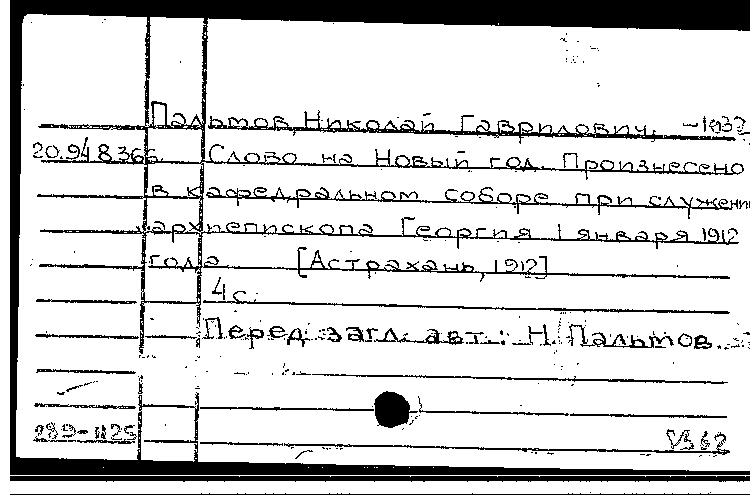 Пальмов, Николай Гаврилович, –1937
20.948366 Слово на Новый год. Произнесено
в кафедральном соборе при служении
архиепископа Георгия 1 января 1912
года [Астрахань, 1912]
4 с.
Перед загл. авт.: Н. Пальмов.
289-1125